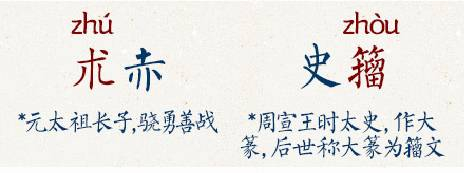 zhú
术赤
*元太祖长子,骁勇善战
zhòu
史籀
*周宣王时太史,作大
篆,后世称大篆为籀文